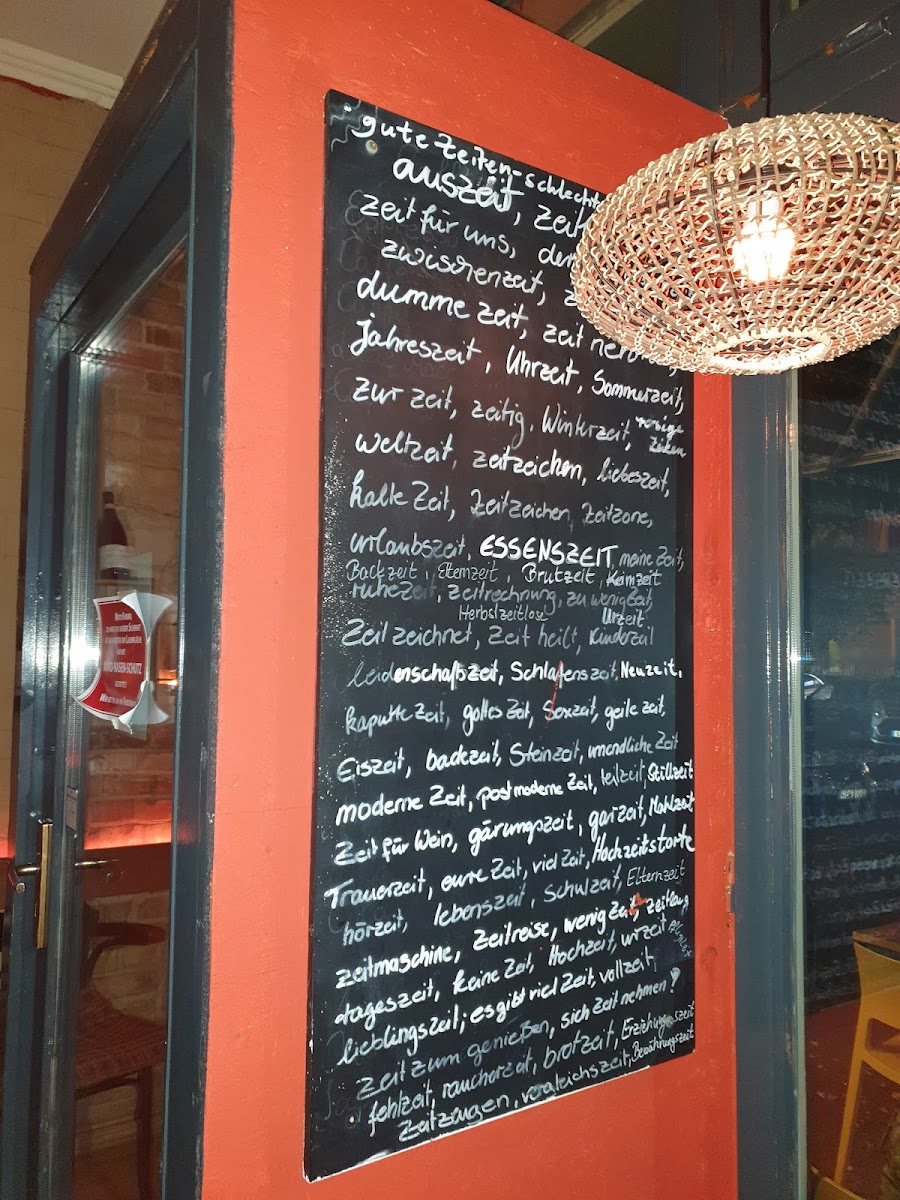 gute Zeiten-schlechte
auszeit, zeit
zeit für uns,
zwischenzeit,
dumme zeit, zeit
Jahreszeit, Uhrzeit, Sommerzeit,
zur zeit, zeitig, Winterzeit,
weltzeit, zeitzeichen, liebeszeit,
kalte Zeit, Zeitzeichen, Zeitzone,
urlaubszeit, ESSENSZEIT, meine Zeit,
Backzeit, Elternzeit, Brutzeit, Keimzeit
ruhezeit, zeitrechnung, zu wenig Zeit,
Herbstzeitlose Urzeit,
Zeit zeichnet, Zeit heilt, Kinderzeit
leidenschaftszeit, Schlafenszeit, Neuzeit,
kaputte Zeit, gottes Zeit, Sexzeit, geile zeit,
Eiszeit, backzeit, Steinzeit, unendliche Zeit
moderne Zeit, postmoderne Zeit, teilzeit, Stillzeit
Zeit für Wein, gärungszeit, garzeit, Mahlzeit
Trauerzeit, eure Zeit, viel Zeit, Hochzeitstorte
hörzeit, lebenszeit, Schulzeit, Elternzeit
zeitmaschine, Zeitreise, wenig Zeit, zeitlang
tageszeit, keine Zeit, Hochzeit, urzeit
lieblingszeit, es gibt viel Zeit, vollzeit,
zeit zum genießen, sich Zeit nehmen!
fehlzeit, raucherzeit, brotzeit, Erziehungszeit
Zeitzeugen, vergleichszeit, Bewährungszeit
MUND-NASEN-SCHUTZ